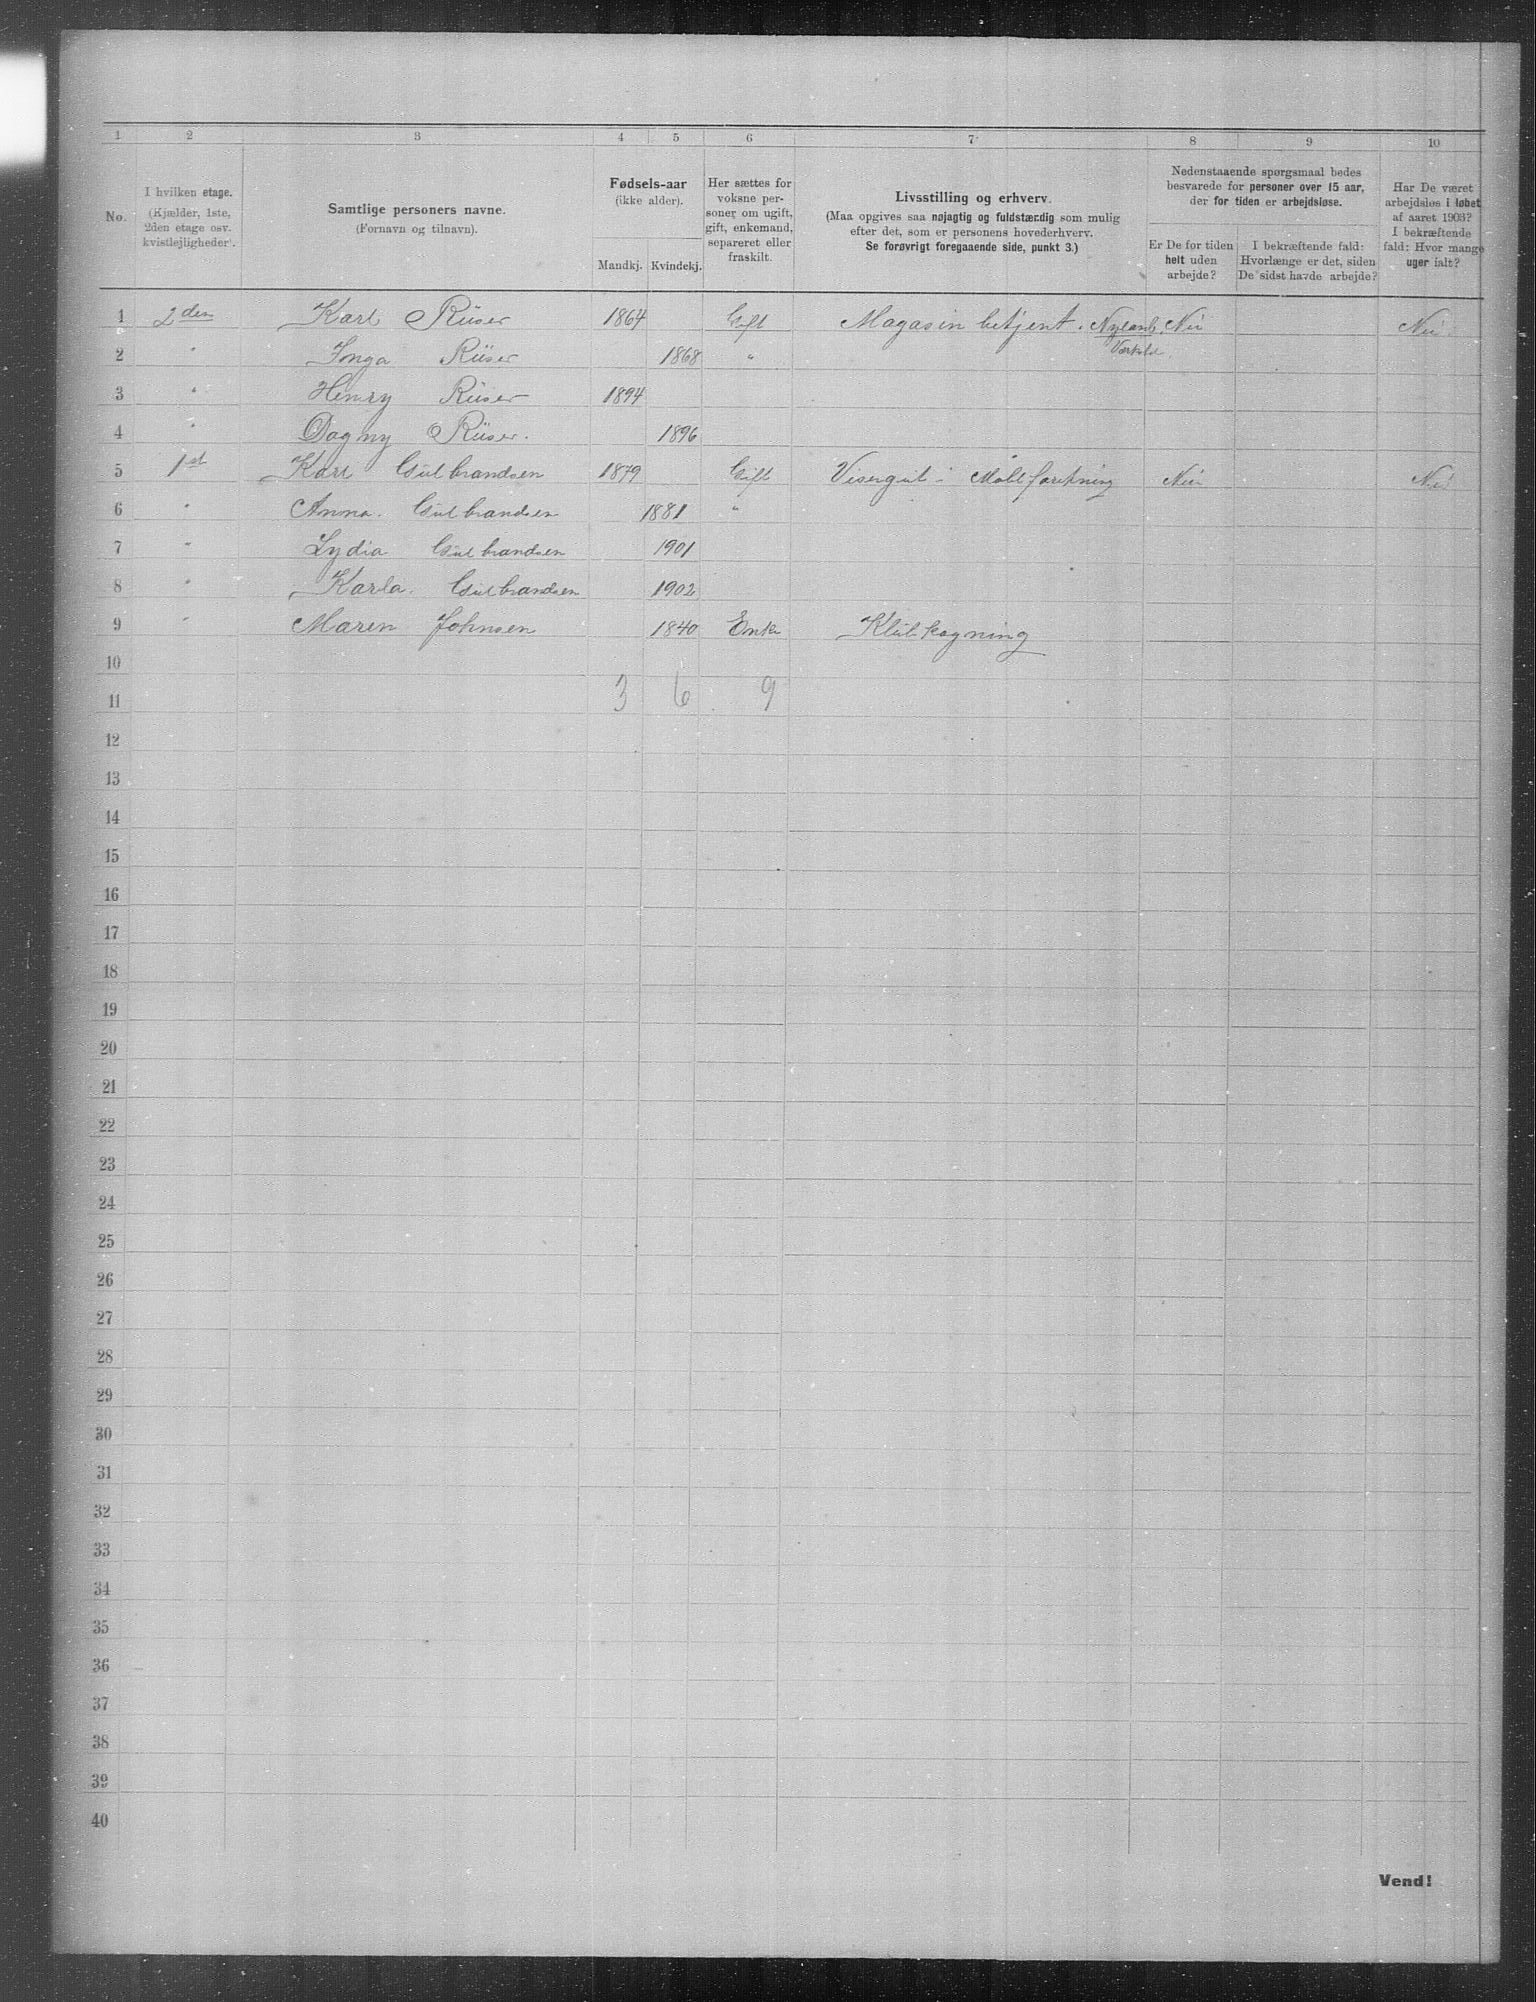 1 2 3 4 5 6 7 8 9 10
No. I hvilken etage. (Kjælder, 1ste, 2den etage osv. kvistlejligheder). Samtlige personers navne. (Fornavn og tilnavn). Fødsels-aar (ikke alder). Mandkj. Kvindekj. Her sættes for voksne personer om ugift, gift, enkemand, separeret eller fraskilt. Livsstilling og erhverv. (Maa opgives saa nøjagtig og fuldstændig som mulig efter det, som er personens hovederhverv. Se forøvrigt foregaaende side, punkt 3.) Nedenstaaende spørgsmaal bedes besvarede for personer over 15 aar, der for tiden er arbejdsløse. Er De for tiden helt uden arbejde? I bekræftende fald: Hvorlænge er det, siden De sidst havde arbejde? Har De været arbejdsløs i løbet af aaret 1903? I bekræftende fald: Hvor mange uger ialt?
1 2den Karl Rüser 1864 Gift Magasin betjent. Nylands Værksted. Nei Nei.
2 " Inga Rüser 1868 "
3 " Henry Rüser 1894
4 " Dagny Rüser. 1896
5 1st Karl Gulbrandsen 1879 Gift Visergut i Møbl foretning Nei Nei
6 " Anna. Gulbrandsen 1881 "
7 " Lydia Gulbrandsen 1901
8 " Karla. Gulbrandsen 1902
9 " Maren Johnsen 1840 Enke
10
11 3 6 9
12
13
14
15
16
17
18
19
20
21
22
23
24
25
26
27
28
29
30
31
32
33
34
35
36
37
38
39
40
Vend!